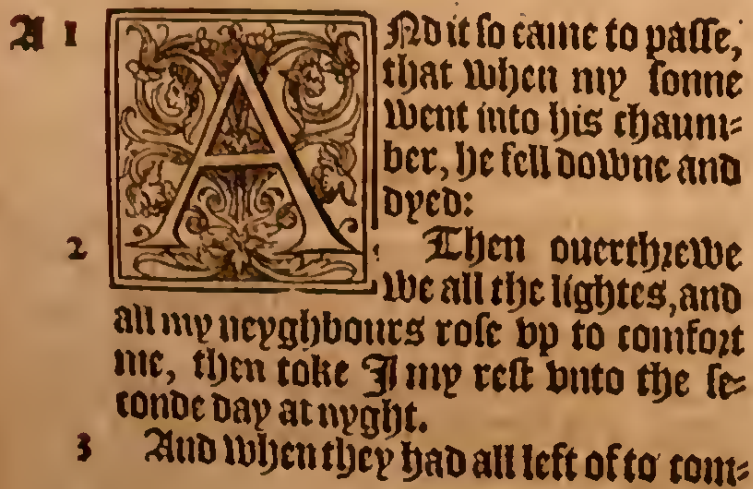 A 1 ANd it ſo came to paſſe,
that when my ſonne
went into his cham⸗
ber, he fell downe and
dyed:
2 Then ouerthrewe
we all the lightes, and
all my neyghbours roſe vp to comfort
me, then toke I my reſt vnto the ſe⸗
conde day at nyght.
3 And when they had all left of to com⸗